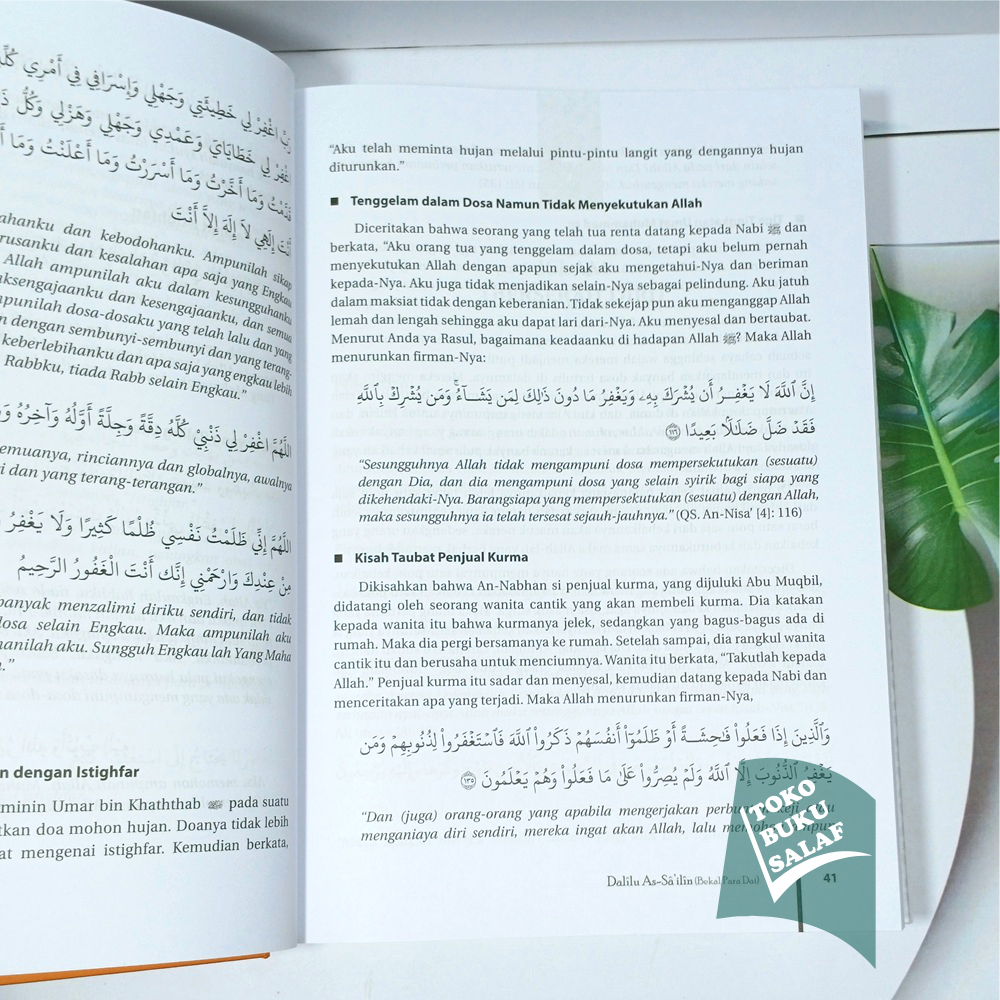 رَبِّ اغْفِرْ لِي خَطِيئَتِي وَجَهْلِي وَإِسْرَافِي فِي أَمْرِي
اغْفِرْ لِي خَطَايَايَ وَعَمْدِي وَجَهْلِي وَهَزْلِي وَكُلُّ
قَدَّمْتُ وَمَا أَخَّرْتُ وَمَا أَسْرَرْتُ وَمَا أَعْلَنْتُ وَمَا
أَنْتَ إِلَهِي لاَ إِلَهَ إِلاَّ أَنْتَ
dan kebodohanku. Ampunilah sikap
dan kesalahan apa saja yang Engkau
Allah ampunilah aku dalam kesungguhanku
dan kesengajaanku, dan semua
dosa-dosaku yang telah lalu dan yang
dengan sembunyi-sembunyi dan yang terang-
keberlebihanku dan apa saja yang engkau lebih
Rabbku, tiada Rabb selain Engkau.”
اللَّهُمَّ اغْفِرْ لِي ذَنْبِيْ كُلَّهُ دِقَّةً وَجِلَّةً أَوَّلُهُ وَآخِرُهُ
rinciannya dan globalnya, awalnya
dan yang terang-terangan.”
اللَّهُمَّ إِنِّي ظَلَمْتُ نَفْسِي ظُلْمًا كَثِيرًا وَلَا يَغْفِرُ
مِنْ عِنْدِكَ وَارْحَمْنِي إِنَّك أَنْتَ الْغَفُورُ الرَّحِيمُ
banyak menzalimi diriku sendiri, dan tidak
dosa selain Engkau. Maka ampunilah aku
aku. Sungguh Engkau lah Yang Maha
n dengan Istighfar
Umar bin Khaththab pada suatu
doa mohon hujan. Doanya tidak lebih
mengenai istighfar. Kemudian berkata,
“Aku telah meminta hujan melalui pintu-pintu langit yang dengannya hujan
diturunkan.”
■ Tenggelam dalam Dosa Namun Tidak Menyekutukan Allah
Diceritakan bahwa seorang yang telah tua renta datang kepada Nabi ﷺ dan
berkata, “Aku orang tua yang tenggelam dalam dosa, tetapi aku belum pernah
menyekutukan Allah dengan apapun sejak aku mengetahui-Nya dan beriman
kepada-Nya. Aku juga tidak menjadikan selain-Nya sebagai pelindung. Aku jatuh
dalam maksiat tidak dengan keberanian. Tidak sekejap pun aku menganggap Allah
lemah dan lengah sehingga aku dapat lari dari-Nya. Aku menyesal dan bertaubat.
Menurut Anda ya Rasul, bagaimana keadaanku di hadapan Allah ﷺ? Maka Allah
menurunkan firman-Nya:
إِنَّ ٱللَّهَ لَا يَغْفِرُ أَن يُشْرَكَ بِهِۦ وَيَغْفِرُ مَا دُونَ ذَٰلِكَ لِمَن يَشَآءُ ۚ وَمَن يُشْرِكْ بِٱللَّهِ
فَقَدْ ضَلَّ ضَلَٰلًۢا بَعِيدًا ١١٦
“Sesungguhnya Allah tidak mengampuni dosa mempersekutukan (sesuatu)
dengan Dia, dan dia mengampuni dosa yang selain syirik bagi siapa yang
dikehendaki-Nya. Barangsiapa yang mempersekutukan (sesuatu) dengan Allah,
maka sesungguhnya ia telah tersesat sejauh-jauhnya.” (QS. An-Nisa’ [4]: 116)
■ Kisah Taubat Penjual Kurma
Dikisahkan bahwa An-Nabhan si penjual kurma, yang dijuluki Abu Muqbil,
didatangi oleh seorang wanita cantik yang akan membeli kurma. Dia katakan
kepada wanita itu bahwa kurmanya jelek, sedangkan yang bagus-bagus ada di
rumah. Maka dia pergi bersamanya ke rumah. Setelah sampai, dia rangkul wanita
cantik itu dan berusaha untuk menciumnya. Wanita itu berkata, “Takutlah kepada
Allah.” Penjual kurma itu sadar dan menyesal, kemudian datang kepada Nabi dan
menceritakan apa yang terjadi. Maka Allah menurunkan firman-Nya,
وَٱلَّذِينَ إِذَا فَعَلُوا۟ فَٰحِشَةً أَوْ ظَلَمُوٓا۟ أَنفُسَهُمْ ذَكَرُوا۟ ٱللَّهَ فَٱسْتَغْفَرُوا۟ لِذُنُوبِهِمْ وَمَن
يَغْفِرُ ٱلذُّنُوبَ إِلَّا ٱللَّهُ وَلَمْ يُصِرُّوا۟ عَلَىٰ مَا فَعَلُوا۟ وَهُمْ يَعْلَمُونَ ١٣٥
“Dan (juga) orang-orang yang apabila mengerjakan perbuatan keji atau
menganiaya diri sendiri, mereka ingat akan Allah, lalu memohon ampun
Dalilu As-Sâ'ilîn (Bekal Para Dai) 41
TOKO
BUKU
SALAF